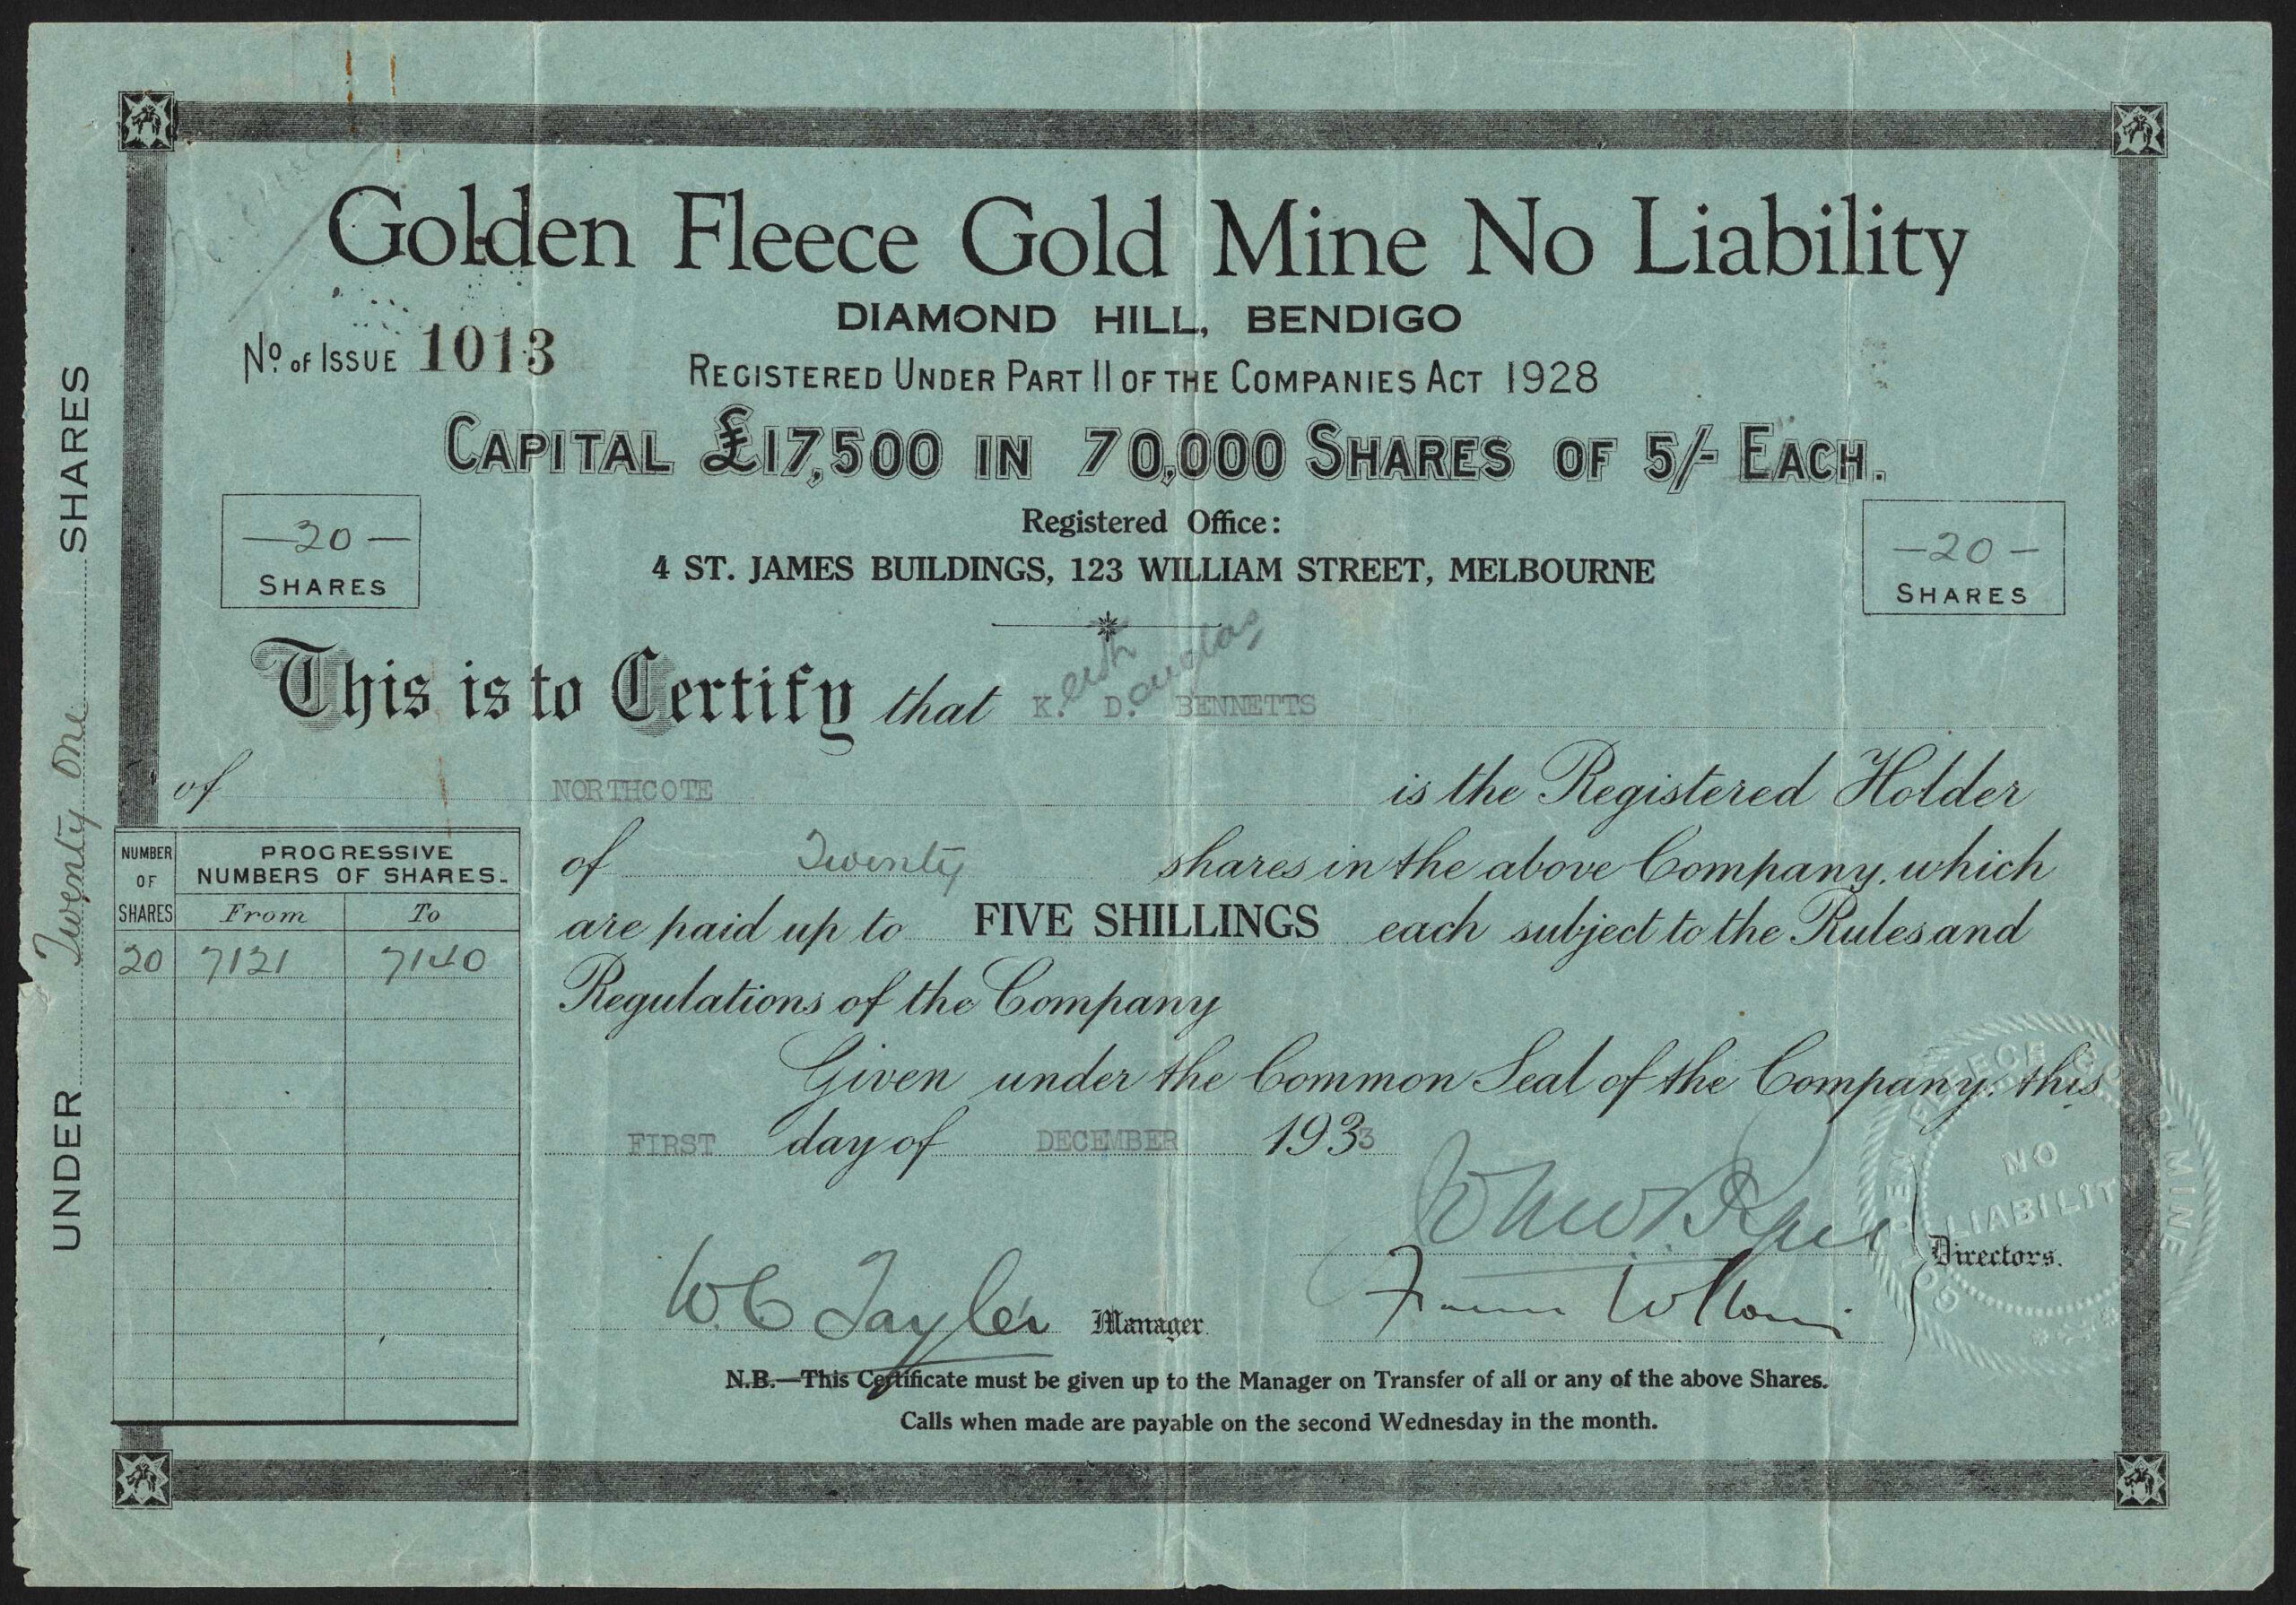 Golden Fleece Gold Mine No Liability
DIAMOND HILL, BENDIGO
No. of ISSUE 1013
REGISTERED UNDER PART II OF THE COMPANIES ACT 1928
CAPITAL £17,500 IN 70,000 SHARES OF 5/- EACH.
Registered Office:
4 ST. JAMES BUILDINGS, 123 WILLIAM STREET, MELBOURNE
—20—
SHARES
—20—
SHARES
This is to Certify that K.eith D.ouglas BENNETTS
of NORTHCOTE is the Registered Holder
of Twenty shares in the above Company, which
are paid up to FIVE SHILLINGS each subject to the Rules and
Regulations of the Company
Given under the Common Seal of the Company, this
FIRST day of DECEMBER 1933
NUMBER OF SHARES
PROGRESSIVE NUMBERS OF SHARES.
From To
20 7121 7140
UNDER Twenty One SHARES
W.C Tayler Manager
Directors.
GOLDEN FLEECE GOLD MINE
NO
LIABILITY
N.B.—This Certificate must be given up to the Manager on Transfer of all or any of the above Shares.
Calls when made are payable on the second Wednesday in the month.